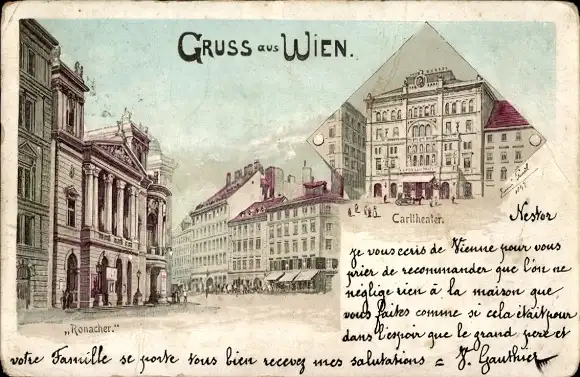 GRUSS aus WIEN.
Carltheater.
„Ronacher."
Nestor
je vous ecris de Vienne pour vous
prier de recommander que l'on ne
néglige rien à la maison que
vous faites comme si cela était pour
dans l'espoir que le grand père et
votre Famille se porte tous bien recevez mes salutations = V. Gauthier